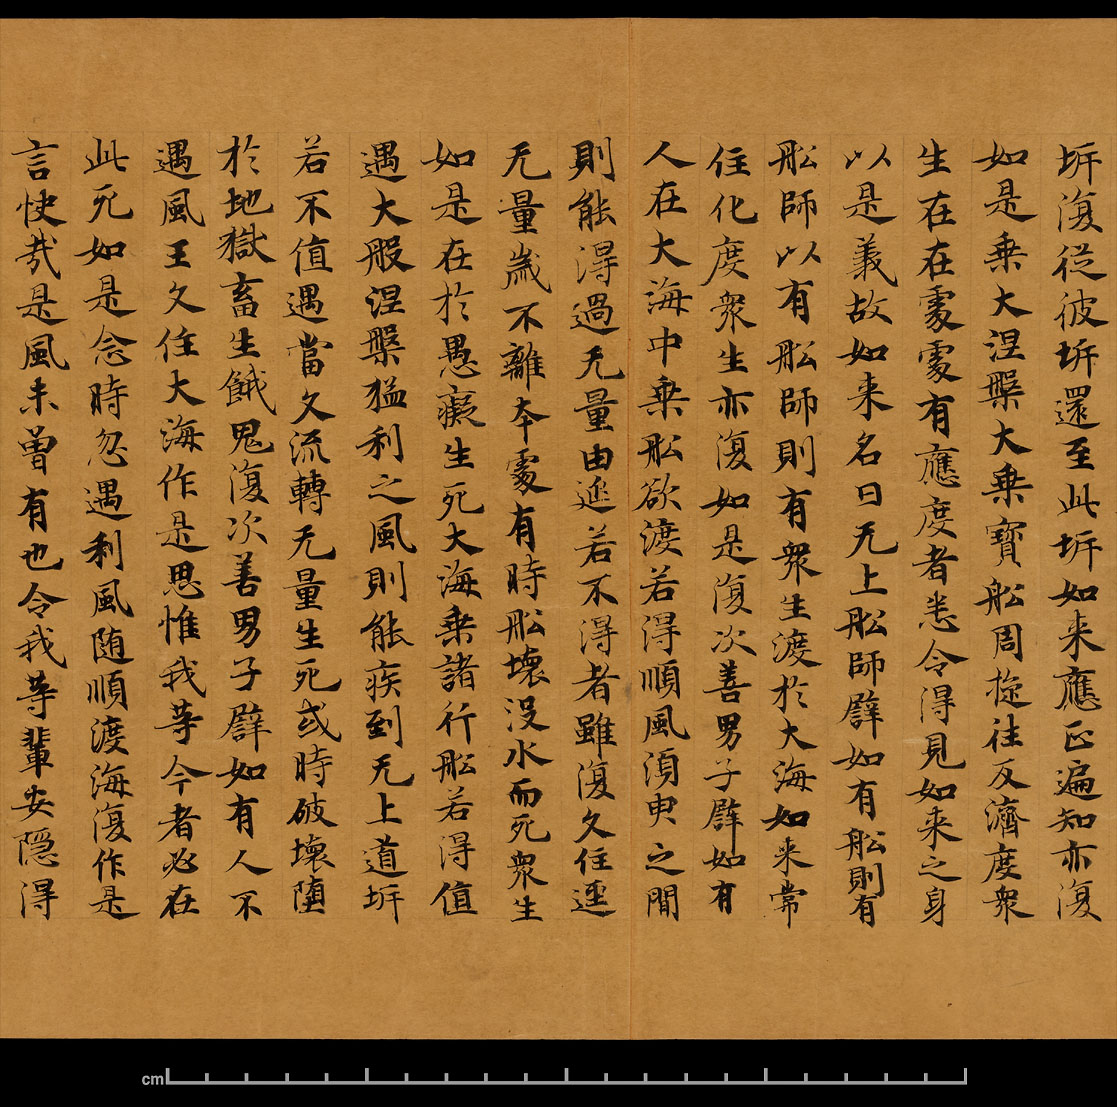 坼復従彼坼還至此坼如来應正遍知亦復
如是乗大涅槃大乗寶舩周旋往反濟度衆
生在在處處有應度者悉令得見如来之身
以是義故如来名曰无上舩師譬如有舩則有
舩師以有舩師則有衆生渡於大海如来常
住化度衆生亦復如是復次善男子譬如有
人在大海中乗舩欲渡若得順風須臾之間
則能得過无量由延若不得者雖復久住逕
无量歳不離本處有時舩壊没水而死衆生
如是在於愚癡生死大海乗諸行舩若得值
遇大般涅槃猛利之風則能疾到无上道坼
若不值遇當久流轉无量生死或時破壊堕
於地獄畜生餓鬼復次善男子譬如有人不
遇風王久住大海作是思惟我等今者必在
此死如是念時忽遇利風随順渡海復作是
言快哉是風未曽有也令我等輩安隠得